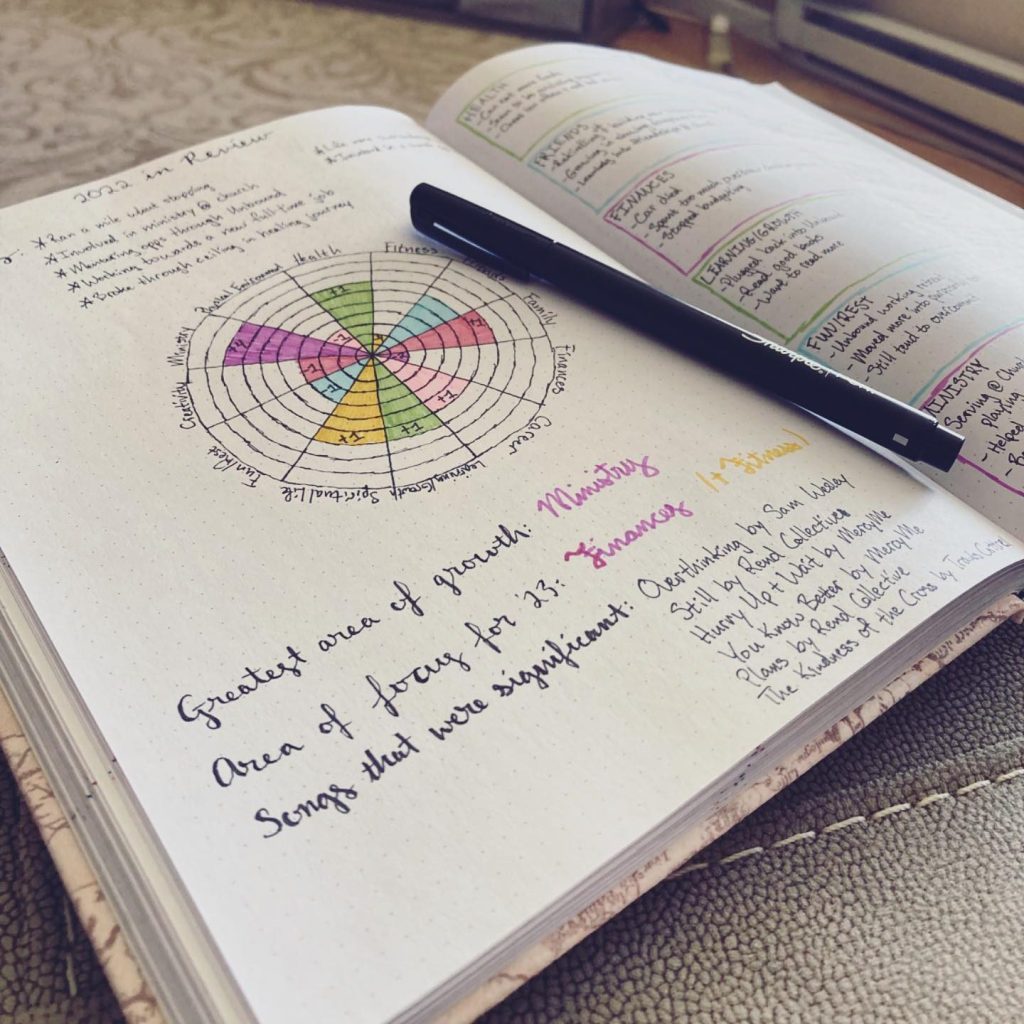 2022 in Review
* Ran a mile w/out stopping
* Involved in ministry @ church
* Mentoring opps through Unbound
* Working towards a new full-time job
* Broke through ceiling in healing journey
* Like more
Physical Environment
Health
Fitness
Friends
Family
Finances
Career
Learning/Growth
Spiritual Life
Fun/Rest
Creativity
Ministry
Greatest area of growth: Ministry
Area of focus for '23: Finances (+ Fitness!)
Songs that were significant: Overthinking by Sam Wesley
Still by Rend Collective
Hurry Up + Wait by MercyMe
You Know Better by MercyMe
Plans by Rend Collective
The Kindness of the Cross by Travis
HEALTH
FRIENDS
FINANCES
- Car died
- Spent too much
- Stopped budgeting
LEARNING/GROWTH
- Plugged back into Unbound
- Read good books
- Want to read more
FUN/REST
- Unbound working
- Moved more into
- Still tend to
MINISTRY
Serving @
playing
- Helped